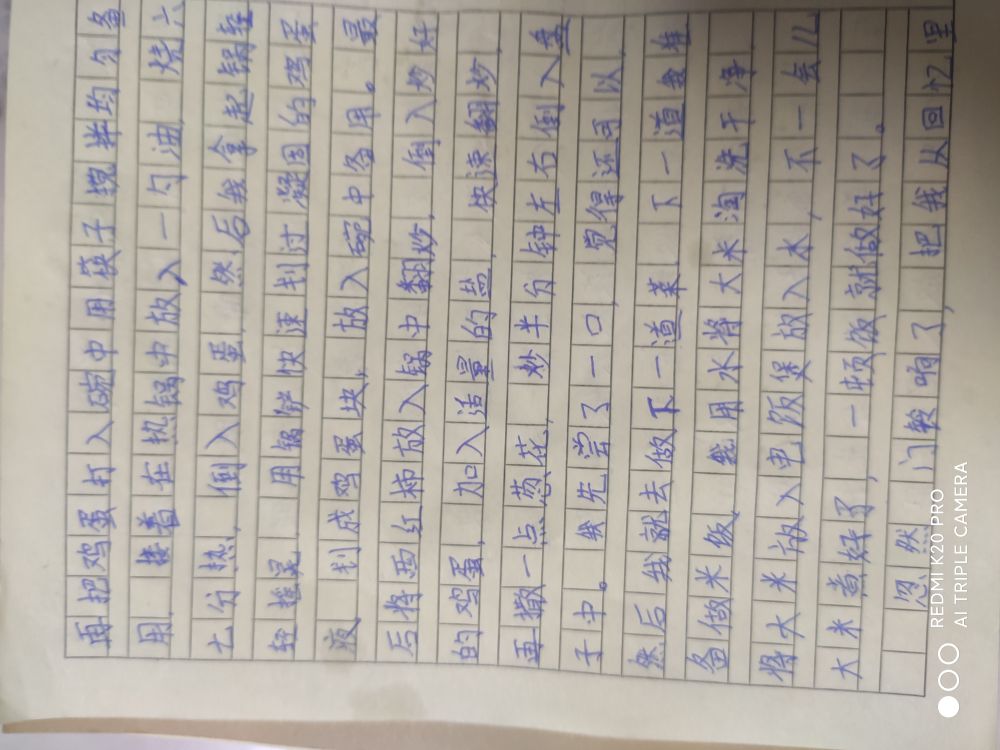 再把鸡蛋打入碗中用筷子搅拌均匀备
用，接着在热锅中放入一勺油，烧六
七分热，倒入鸡蛋，然后我拿起锅轻
轻摇晃，用锅铲快速划过凝固的鸡蛋
液，划成鸡蛋块，放入碗中备用。最
后将西红柿放入锅中翻炒，倒入炒好
的鸡蛋，加入适量的盐，快速翻炒，
再撒一点葱花，炒半分钟左右倒入盘
子中。我先尝了一口，觉得还可以，
然后我就去做下一道菜，下一道我准
备做米饭，我用水将大米淘洗干净，
将大米放入电饭煲放入水，不一会儿
大米煮好了，一顿饭就做好了。
忽然，门铃响了，把我从回忆里
REDMI K20 PRO
AI TRIPLE CAMERA